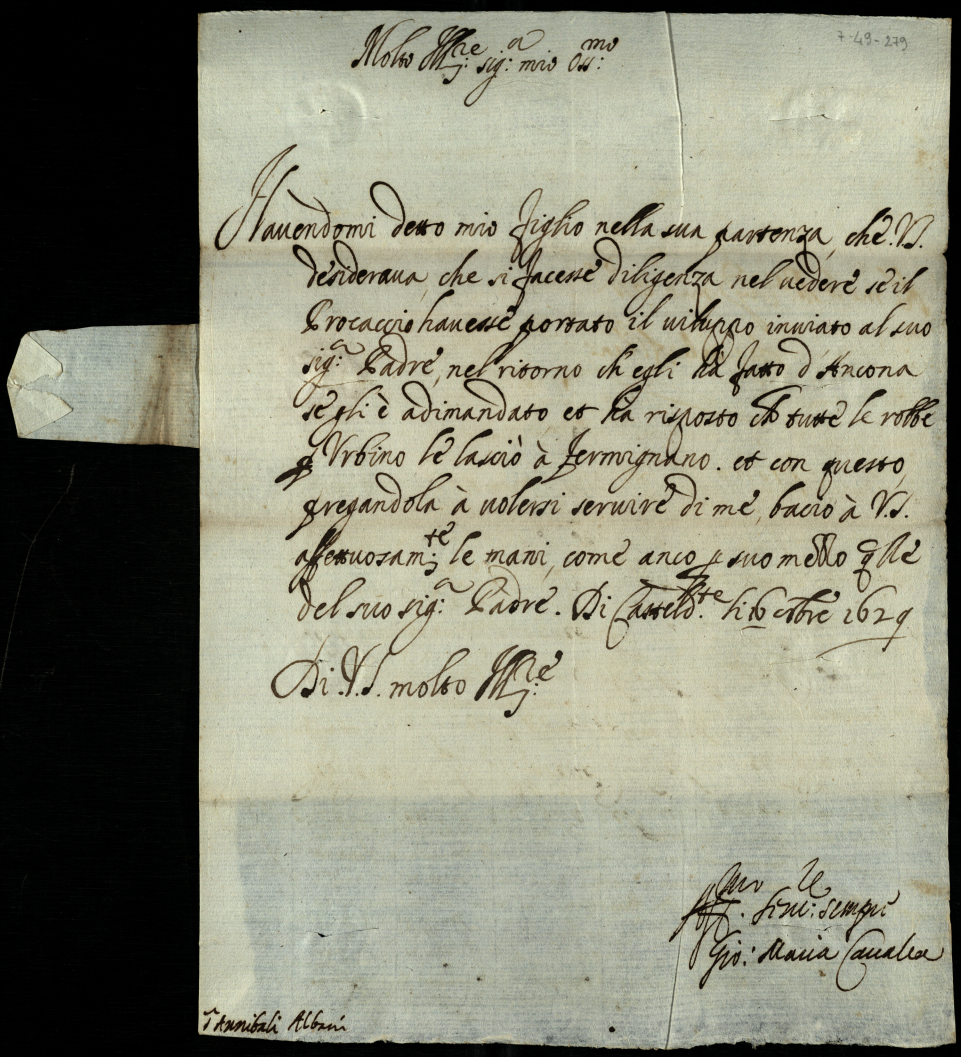 7-49-279
Molto Ill.re sig.a mio Oss.mo
Havendomi detto mio figlio nella sua partenza, che V.S.
desiderava, che si facesse diligenza nel vedere se il
Procaccio havesse portato il viluppo inviato al suo
sig.a Padre, nel ritorno ch egli hà fatto d'Ancona
se gli è adimandato et ha risposto ch tutte le robbe
p Urbino le lasciò à Fermignano. et con questo,
pregandola à volersi servire di me, bacio à V.S.
affettuosam.te le mani, come anco p suo mezzo q.lle
del suo sig.a Padre. Di Casteld.te li 16 cbre 1629
Di V.S. molto Ill.re
Aff.mo Ser.re sempre
Gio: Maria
S Annibali Albani